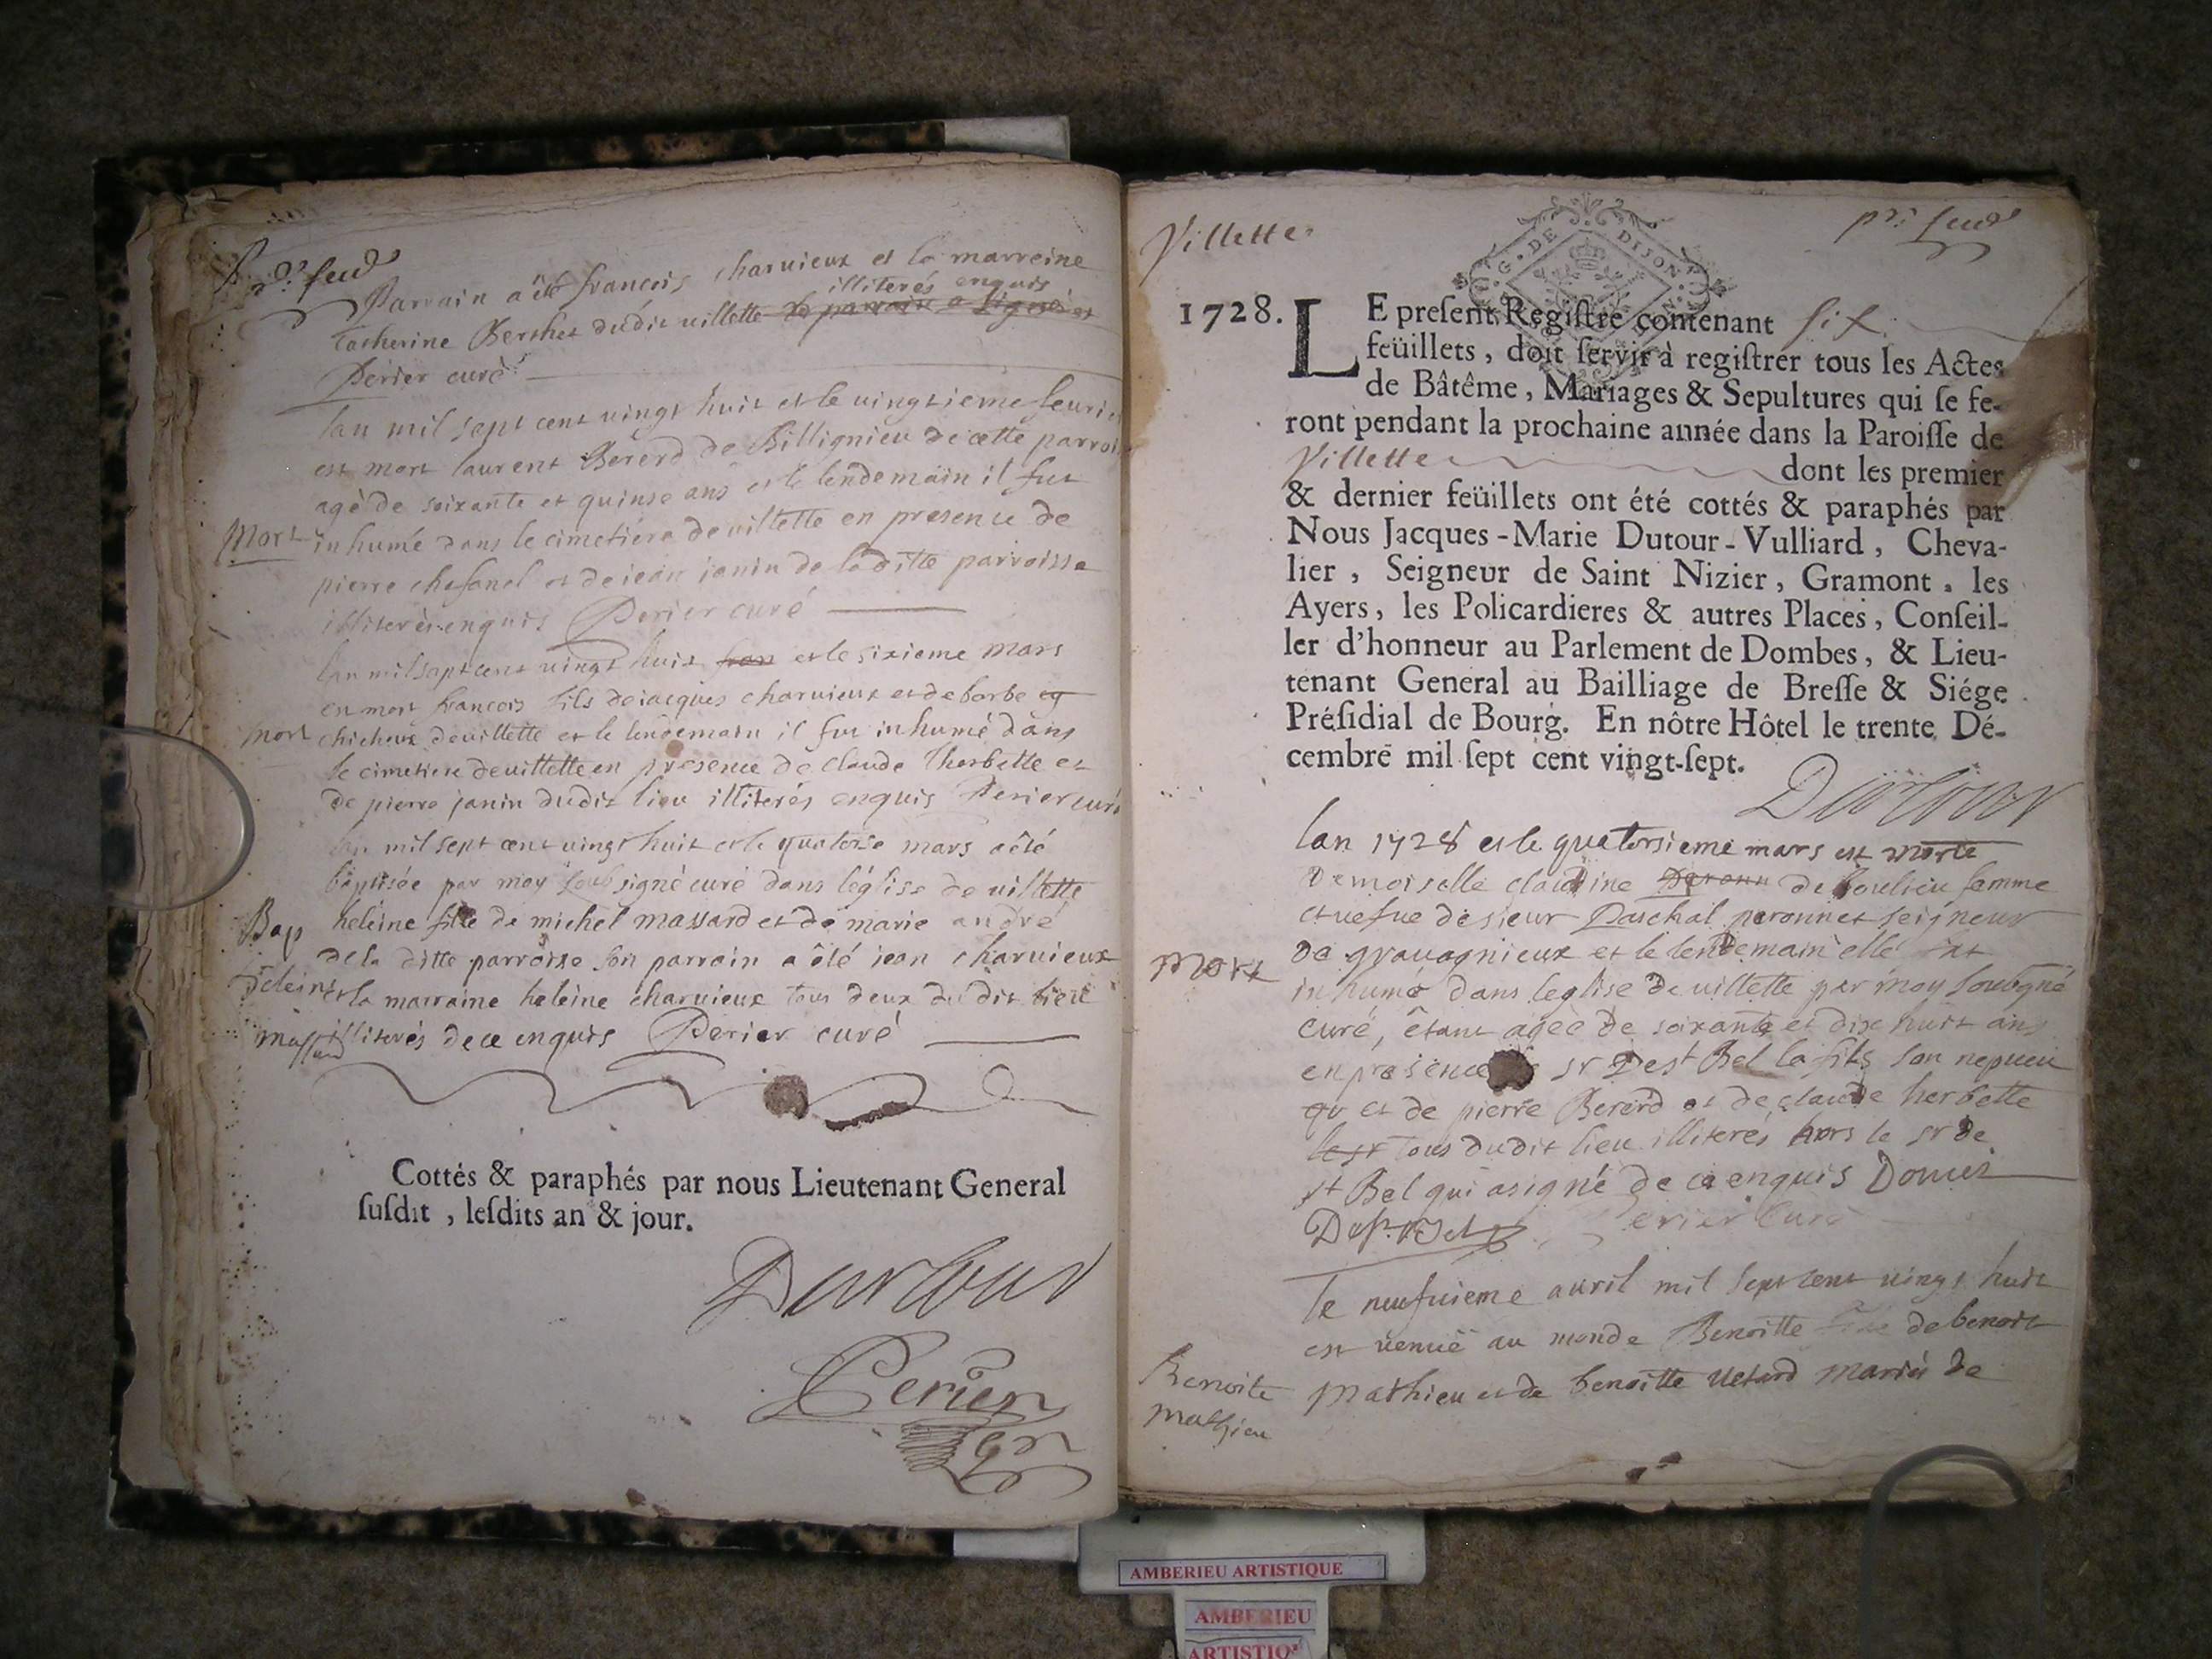 parrain a été francois charuieux et la marreine
illiterés enquis
Catherine Berthet dudit uillette le parrain a signé et
Perier curé
lan mil sept cent uingt huit et le uingtieme feurier
est mort laurent Bererd de Billignieu de cette parroisse
agé de soixante et quinse ans et le lendemain il fut
Mort
inhumé dans le cimetiére de uillette en presence de
pierre chefanel et de iean ianin de la ditte parroisse
illiterés enquis Perier curé
lan mil sept cent uingt huit et le sixieme mars
est mort francois fils de iacques charuieux et de barbe
mort
chichoux de uillette et le lendemain il fut inhumé dans
le cimetiere de uillette en presence de claude therbette et
de pierre janin dudit lieu illiterés enquis Perier curé
lan mil sept cent uingt huit et le quatorse mars a êté
baptisée par moy soubsigné curé dans léglise de uillette
Bap
heleine fille de michel massard et de marie andré
de la ditte parroisse son parrain a êté iean charuieux
heleine
et la marraine heleine charuieux tous deux du dit lieu
massard
illiterés de ce enquis Perier curé
Cottés & paraphés par nous Lieutenant General
susdit, lesdits an & jour.
Dutour
Perier
Villette
G. DE DIJON
1728.
LE present Registre contenant six
feüillets, doit servir à registrer tous les Actes
de Bâtême, Mariages & Sepultures qui se fe-
ront pendant la prochaine année dans la Paroisse de
Villette dont les premier
& dernier feüillets ont été cottés & paraphés par
Nous Jacques-Marie Dutour-Vulliard, Cheva-
lier, Seigneur de Saint Nizier, Gramont, les
Ayers, les Policardieres & autres Places, Conseil-
ler d'honneur au Parlement de Dombes, & Lieu-
tenant General au Bailliage de Bresse & Siége
Présidial de Bourg. En nôtre Hôtel le trente Dé-
cembre mil sept cent vingt-sept.
Dutour
lan 1728 et le quatorsieme mars est morte
Demoiselle claudine de femme
et uefue de sieur Paschal peronnet seigneur
de grauagnieux et le lendemain elle fut
mort
inhumé dans leglise de uillette par moy soubsgné
curé, êtant agée de soixante et dix huit ans
en presence sr De st Bel la fits son nepueu
et de pierre Bererd et de claude herbette
le sr tous dudit lieu illiterés hors le sr de
st Bel qui a signé de ce enquis
De st Bel Perier curé
le neufuieme auril mil sept cent uingt huit
est uenuë au monde Benoitte fille de benoit
Benoite
mathieu et de benoitte uetard mariés de
mathieu
AMBERIEU ARTISTIQUE
AMBERIEU
ARTISTIQ